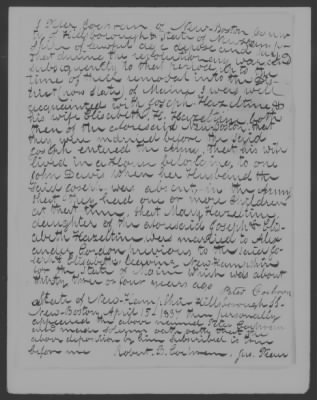 I Peter Cochran of New-Boston County
of Hillsborough & State of New Hamp-
of lawful age depose and say
that during the revolutionary war and
subsequently to that period, to the
time of their removal into the Dis-
trict (now State) of Maine I was well
acquainted with Joseph Hazeltine &
his wife Elisabeth H. Hazeltine both
then of the aforesaid New Boston, that
they were married before the said
Joseph entered the army, that his wife
lived in a house belonging to one
John Lewis when her husband the
said Joseph was absent in the Army
that they had one or more children
at that time, that Mary Hazeltine
daughter of the aforesaid Joseph & Elis-
abeth Hazeltine was married to Alex-
ander Gordon previous to the said Jo-
seph & Elisabeth leaving New-Hampshire
for the State of Maine which was about
thirty three or four years ago
Peter Cochran
State of New-Hampshire Hillsborough SS.
New-Boston April 15th 1837 then personally
appeared the above named Peter Cochran
and made solemn oath that the
above deposition by him subscribed is true
before me Robert B. Cochran, Jus. Peace